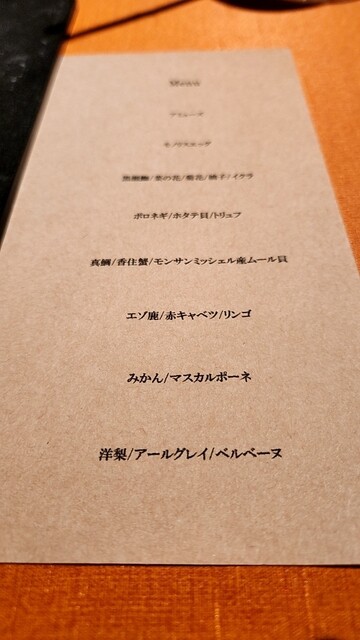 Menu
アミューズ
モノリスエッグ
菜の花/菊花/柚子/イクラ
ポロネギ/ホタテ貝/トリュフ
真鯛/香住蟹/モンサンミッシェル産ムール貝
エゾ鹿/赤キャベツ/リンゴ
みかん/マスカルポーネ
洋梨/アールグレイ/ベルベーヌ